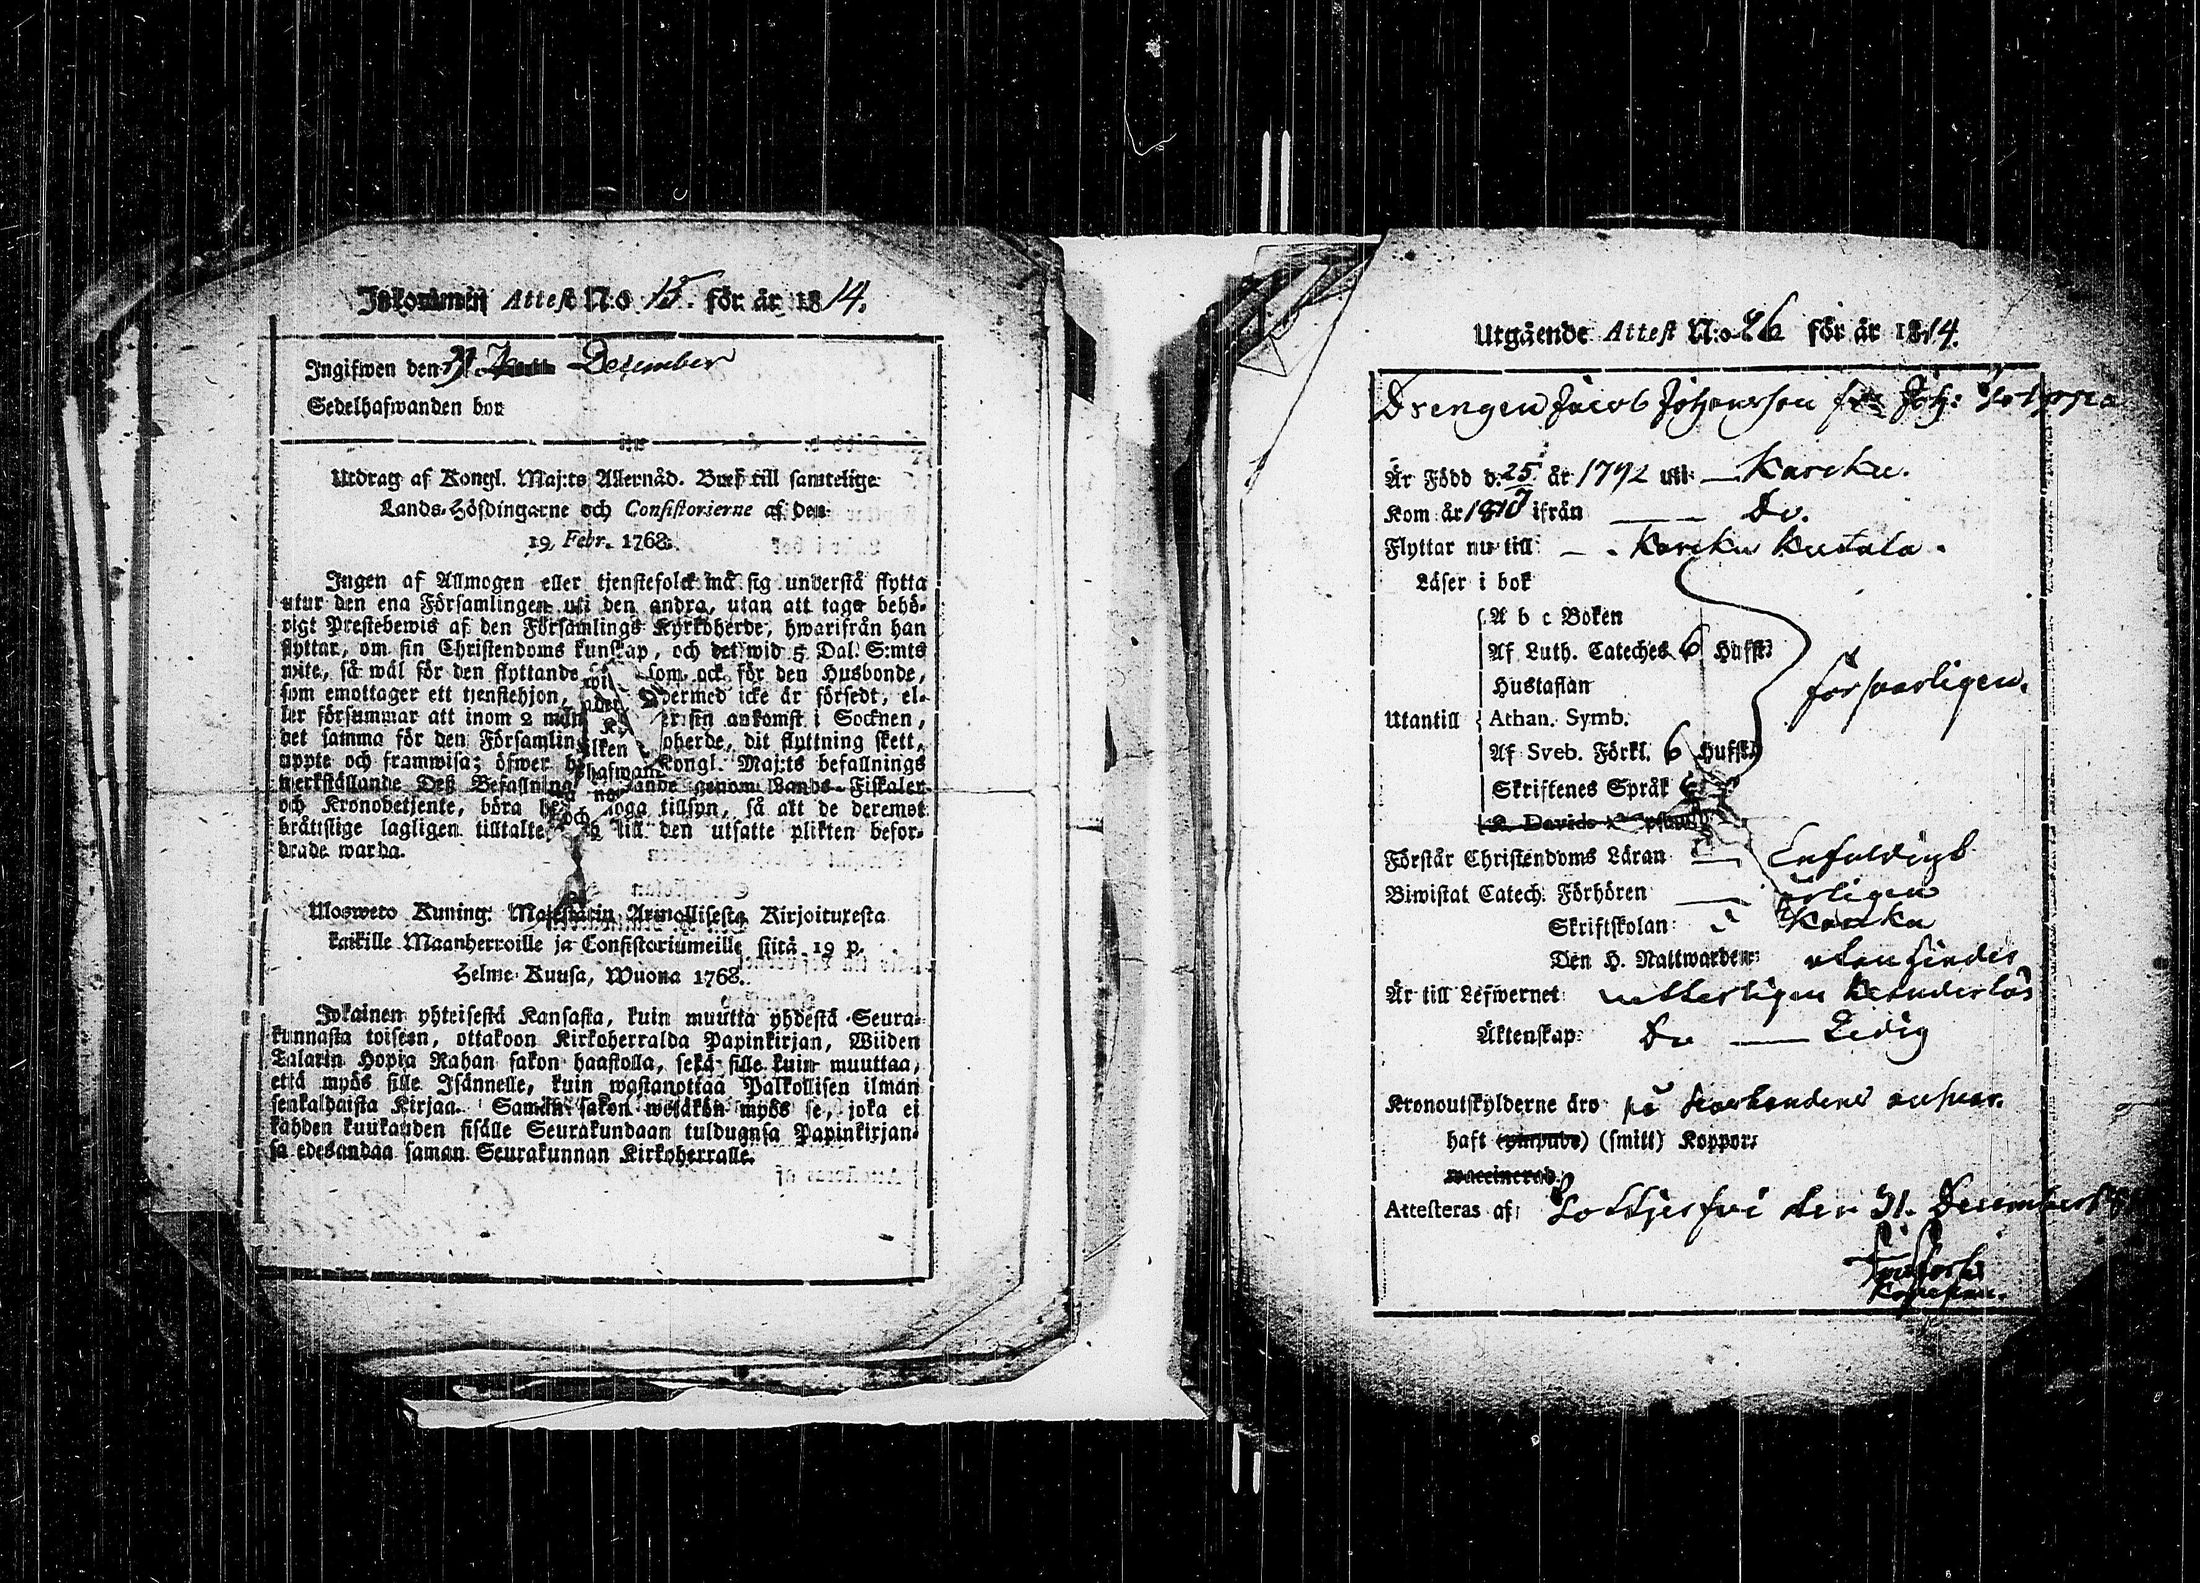 Inkommen Attest N:o 15. för år 1814.
Ingifwen den 31. December
Sedelhafwanden bor
Utdrag af Kongl. Maj:ts Allernåd. Bref till samtelige
Lands-Höfdingarne och Consistorierne af den
19 Febr. 1768.
Ingen af Allmogen eller tjenstefolck må sig understå flytta
utur den ena Församlingen uti den andra, utan att taga behö-
rigt Prestebewis af den Församlings Kyrkoherde, hwarifrån han
flyttar, om sin Christendoms kunskap, och det wid 5 Dal. S:mts
wite, så wäl för den flyttande som ock för den Husbonde,
som emottager ett tjenstehjon, dermed icke är försedt, el-
ler försummar att inom 2 mån efter sin ankomst i Socknen,
det samma för den Församlin oherde, dit flyttning skett,
uppte och framwisa; öfwer h Kongl. Maj:ts befallnings
werkställande Deß Befallning ande genom Lands-Fiskaler
och Kronobetjente, böra noga tillsyn, så att de deremot
bråttslige lagligen tilltalte och till den utsatte plikten befor-
drade warda.
Uloswеto Kuning. Majestätin Armollisesta Kirjoituxesta
kaikille Maanherroille ja Consistoriumeille siitä 19 p.
Helme-Kuusa, Wuona 1768.
Jokainen yhteisestä Kansasta, kuin muutta yhdestä Seura-
kunnasta toiseen, ottakoon Kirkoherralda Papinkirjan, Wiiden
Talarin Hopia Rahan sakon haastolla, sekä sille kuin muuttaa,
että myös sille Isännelle, kuin wastanottaa Palkollisen ilman
senkaldaista Kirjaa. Saman sakon wetäkön myös se, joka ei
kahden kuukauden sisälle Seurakundaan tulduansa Papinkirjan-
sa edesandaa saman Seurakunnan Kirkoherralle.
Utgående Attest N:o 26 för år 1814.
Drengen Jacob Johansson Joh:
Är Född d. 25 år 1792 uti Karcku.
Kom år 1810 ifrån Do.
Flyttar nu till Karcku Kutala.
Läser i bok
A b c Boken
Af Luth. Cateches 6 Hufst:
Hustaflan
försvarligen.
Utantill Athan. Symb.
Af Sveb. Förkl. 6 Hufst:
Skriftenes Språk
K. Davids psalm
Förstår Christendoms Läran Enfaldigt
Biwistat Catech. Förhören årligen
Skriftskolan i Karcku
Den H. Nattwarden
Är till Lefwernet
Äktenskap: Do Ledig
Kronoutskylderne äro på ansvar.
haft (ympade) (smitt) Koppor:
vaccinerad.
Attesteras af den 31. December